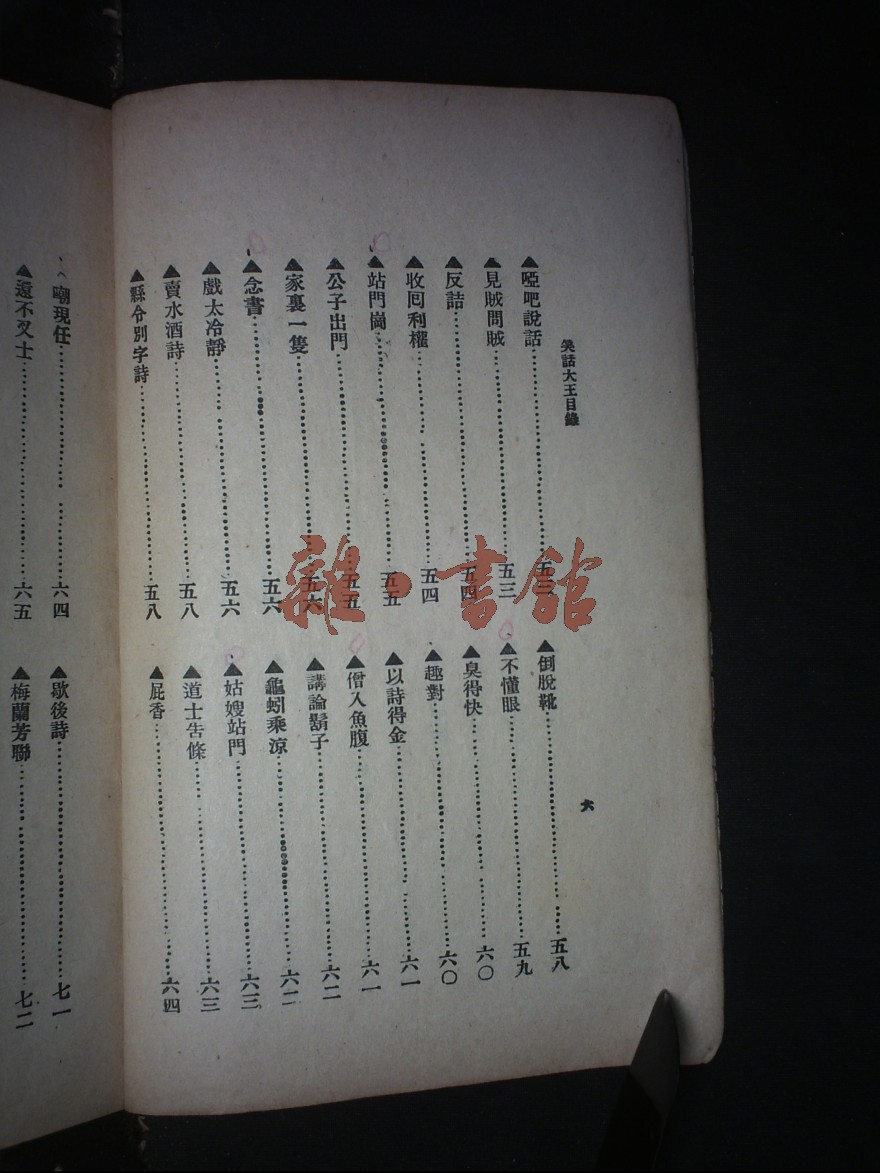 笑話大王目錄
六
▲啞吧說話…………五三
▲見賊問賊…………五三
▲反詰…………五四
▲收回利權…………五四
▲站門崗…………五五
▲公子出門…………五五
▲家裏一隻…………五六
▲念書…………五六
▲戲太冷靜…………五六
▲賣水酒詩…………五八
▲縣令別字詩…………五八
▲倒脫靴…………五八
▲不懂眼…………五九
▲臭得快…………六〇
▲趣對…………六〇
▲以詩得金…………六一
▲僧入魚腹…………六一
▲講論鬍子…………六二
▲龜蚓乘涼…………六二
▲姑嫂站門…………六三
▲道士告條…………六三
▲屁香…………六四
嘲現任…………六四
▲還不叉士…………六五
▲歇後詩…………七一
▲梅蘭芳聯…………七二
雜·書館